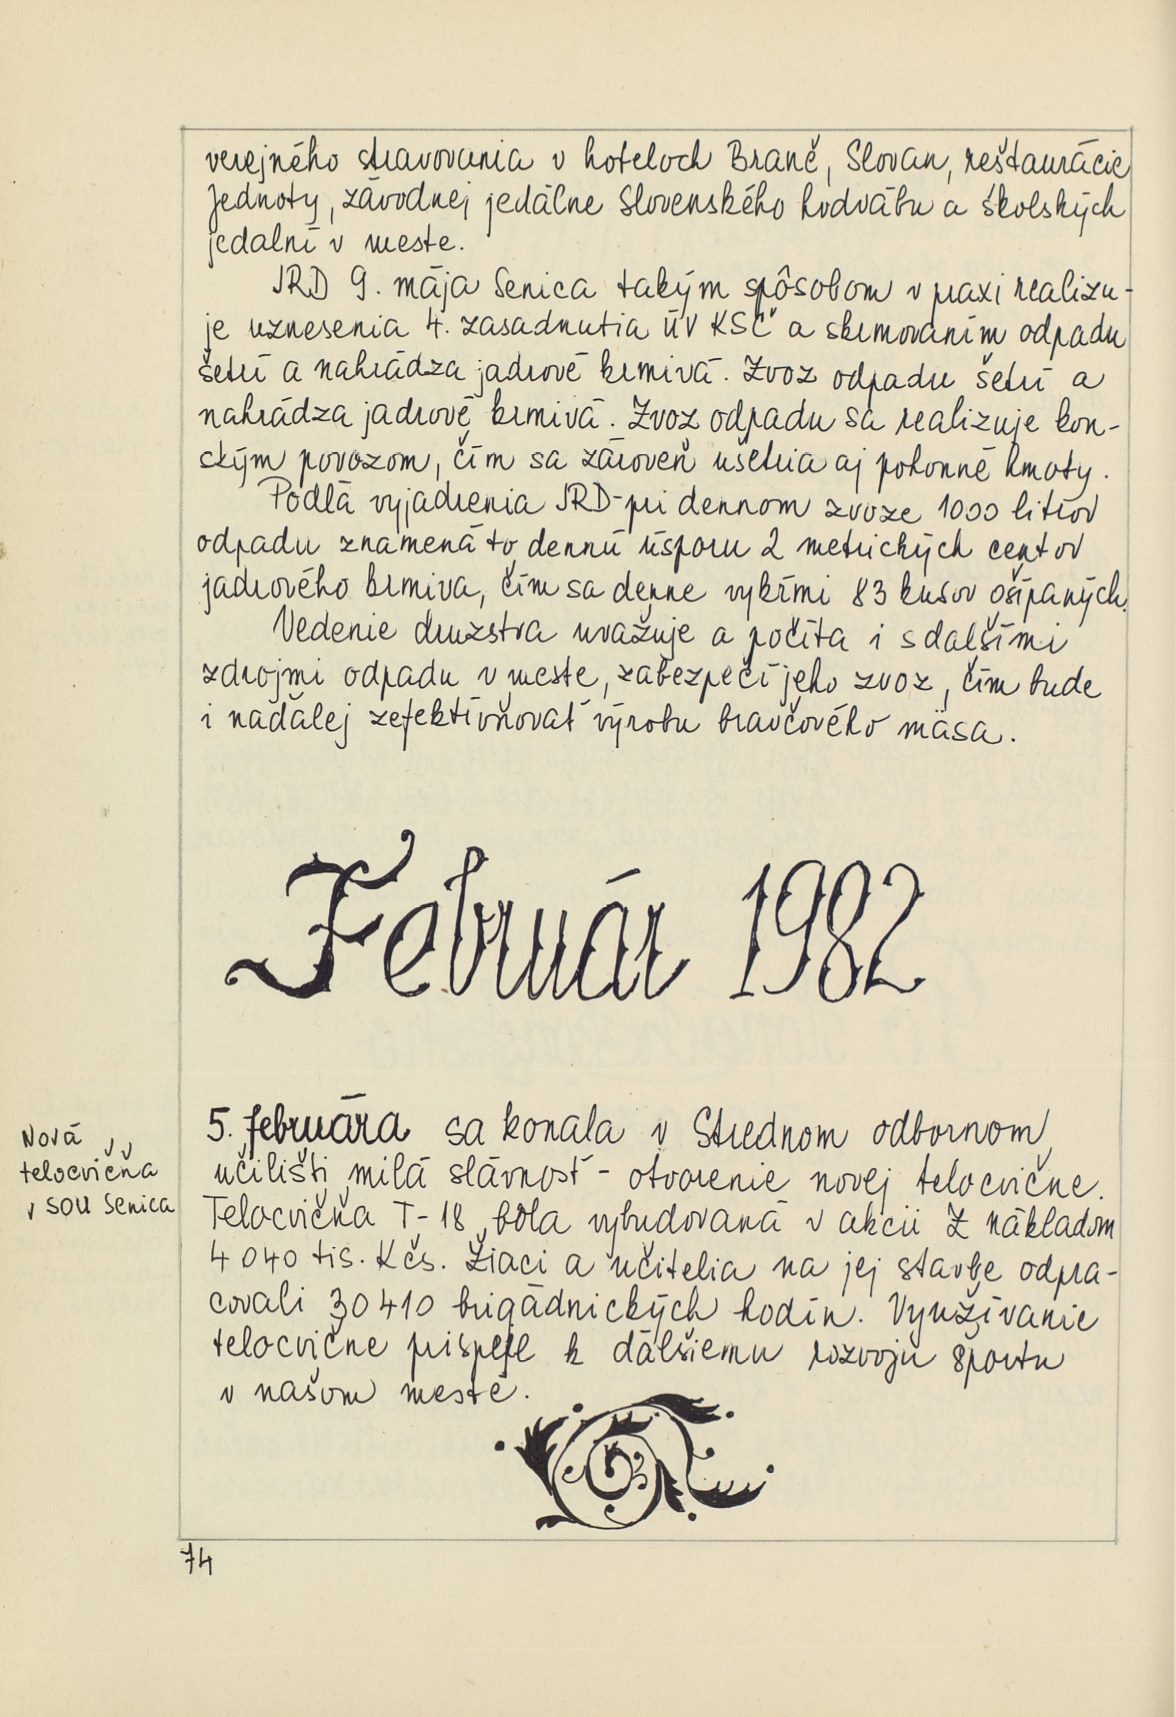 verejného stravovania v hoteloch Branč, Slovan, reštaurácie
Jednoty, závodnej jedálne Slovenského hodvábu a školských
jedalní v meste.
JRD 9. mája Senica takým spôsobom v praxi realizu-
je uznesenia 4. zasadnutia ÚV KSČ a skrmovaním odpadu
šetrí a nahrádza jadrové krmivá. Zvoz odpadu šetrí a
nahrádza jadrové krmivá. Zvoz odpadu sa realizuje kon-
ským povozom, čím sa zároveň ušetria aj pohonné hmoty.
Podľa vyjadrenia JRD-pri dennom zvoze 1000 litrov
odpadu znamená to dennú úsporu 2 metrických centov
jadrového krmiva, čím sa denne vykŕmi 83 kusov ošípaných.
Vedenie družstva uvažuje a počíta i s ďalšími
zdrojmi odpadu v meste, zabezpečí jeho zvoz, čím bude
i naďalej zefektívňovať výrobu bravčového mäsa.
Február 1982
Nová
telocvičňa
v SOU Senica
5. februára sa konala v Strednom odbornom
učilišti milá slávnosť - otvorenie novej telocvične.
Telocvičňa T-18 bola vybudovaná v akcii Z nákladom
4 040 tis. Kčs. Žiaci a učitelia na jej stavbe odpra-
covali 30 410 brigádnických hodín. Využívanie
telocvične prispeje k ďalšiemu rozvoju športu
v našom meste.
74